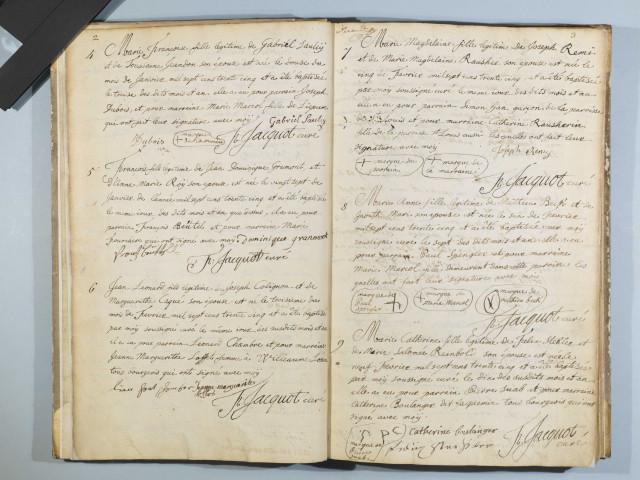 2
4
Marie Françoise fille légitime de Gabriel Pauly
et de Toussaine Jeandon son épouse est née le douze du
mois de Janvier mil sept cens trente cinq et a été baptisée
le treize des dits mois et an elle a eu pour parrain Joseph
Dubois, et pour marraine Marie Marcol fille de
qui ont fait leur signature avec moy Gabriel Pauly
Dubois marque de la marraine Jh Jacquot curé
5
François fils légitime de Jean Dominique Gramont, et
d'Anne Marie Roy son épouse est né le vingt sept de
Janvier de l'année mil sept cens trente cinq et a été baptisé
le même jour des dits mois et an que dessus, il a eu pour
parrain François Beütel et pour marraine Marie
qui ont signé avec moy Dominique gramont
Jh Jacquot curé
6
Jean Leonard fils légitime de Joseph Colignon et de
Marguerithe Cagué son épouse est né le troisième du
mois de février mil sept cens trente cinq et a été baptisé
par moy soussigné curé le même jour des susdits mois et an
il a eu pour parrain Léonard Chambre et pour marraine
Jeanne Marguerithe femme à
tous bourgeois qui ont signé avec moy
Jeanne marguerite
Jh Jacquot curé
3
7
Marie Magdelaine fille légitime de Joseph Remi
et de Marie Magdelaine Rausher son épouse est née le
cinq de février mil sept cens trente cinq et a été baptisée
par moy soussigné curé le même jour des dits mois et an
elle a eu pour parrain Simon Jean garçon de la paroisse
de St Louis et pour marraine Catherine Rausherin
fille de la paroisse St Louis aussi lesquelles ont fait leur
signature avec moy Joseph Remy
marque du parrain marque de la marraine
Jh Jacquot curé
8
Marie Anne fille légitime de Mathieu Besch et de
son épouse est née le six de février
mil sept cens trente cinq et a été baptisée par moy
soussigné curé le sept des dits mois et an elle a eu
pour parrain Paul Spingler et pour marraine
Marie Marcol fille demeurant dans cette paroisse les
quelles ont fait leur signature avec moy
marque de paul spingler marque de marie Marcol marque de
Jh Jacquot curé
9
Marie Catherine fille légitime de Felix Mekler et
de Marie Salomé Reinbold son épouse est née le
neuf février mil sept cens trente cinq et a été baptisée
par moy soussigné curé le dix des susdits mois et an
elle a eu pour parrain Pierre et pour marraine
Catherine Boulanger tous bourgeois qui ont
signé avec moy
P C Catherine boulanger
marque de pierre
Jh Jacquot curé